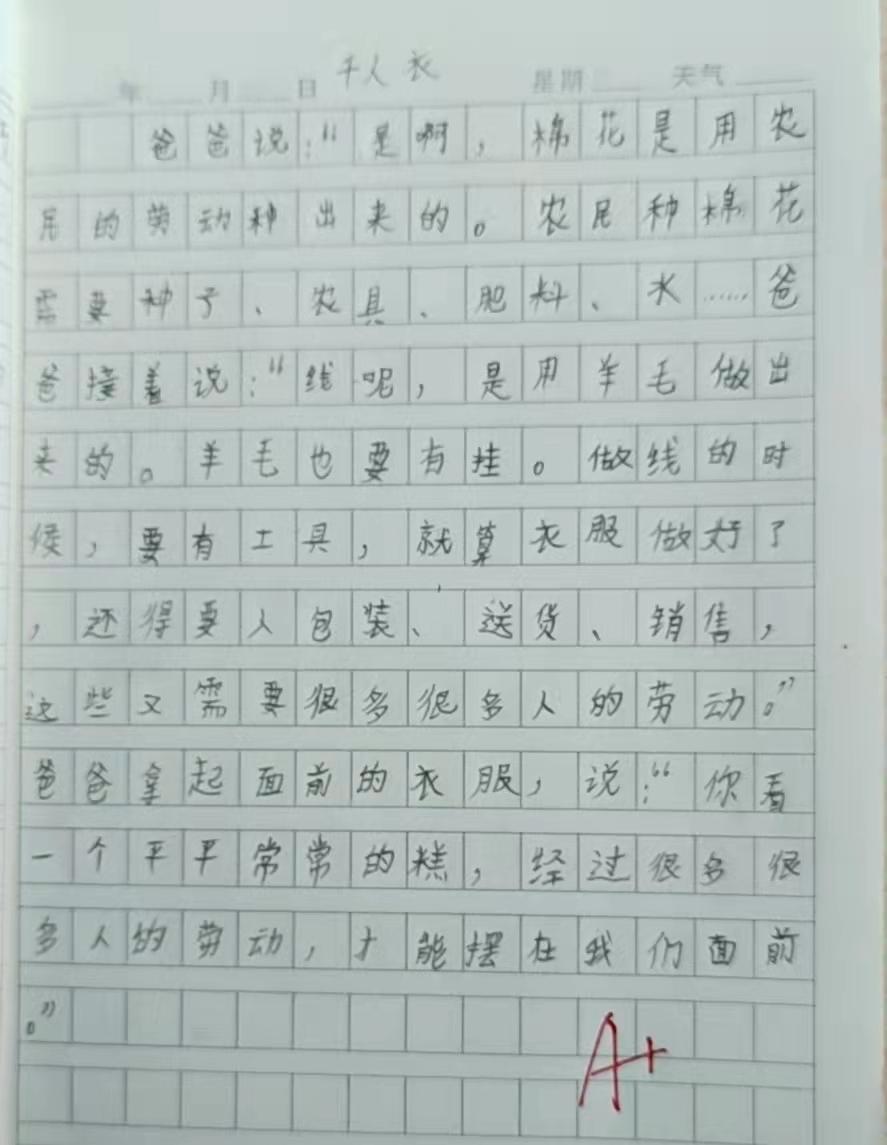 年 月 日 千人衣 星期 天气
爸爸说:“是啊,棉花是用农
民的劳动种出来的。农民种棉花
需要种子、农具、肥料、水……爸
爸接着说:“线呢,是用羊毛做出
来的。羊毛也要有挂。做线的时
候,要有工具,就算衣服做好了
,还得要人包装、送货、销售,
这些又需要很多很多人的劳动。”
爸爸拿起面前的衣服,说:“你看
一个平平常常的糕,经过很多很
多人的劳动,才能摆在我们面前
。”
A+